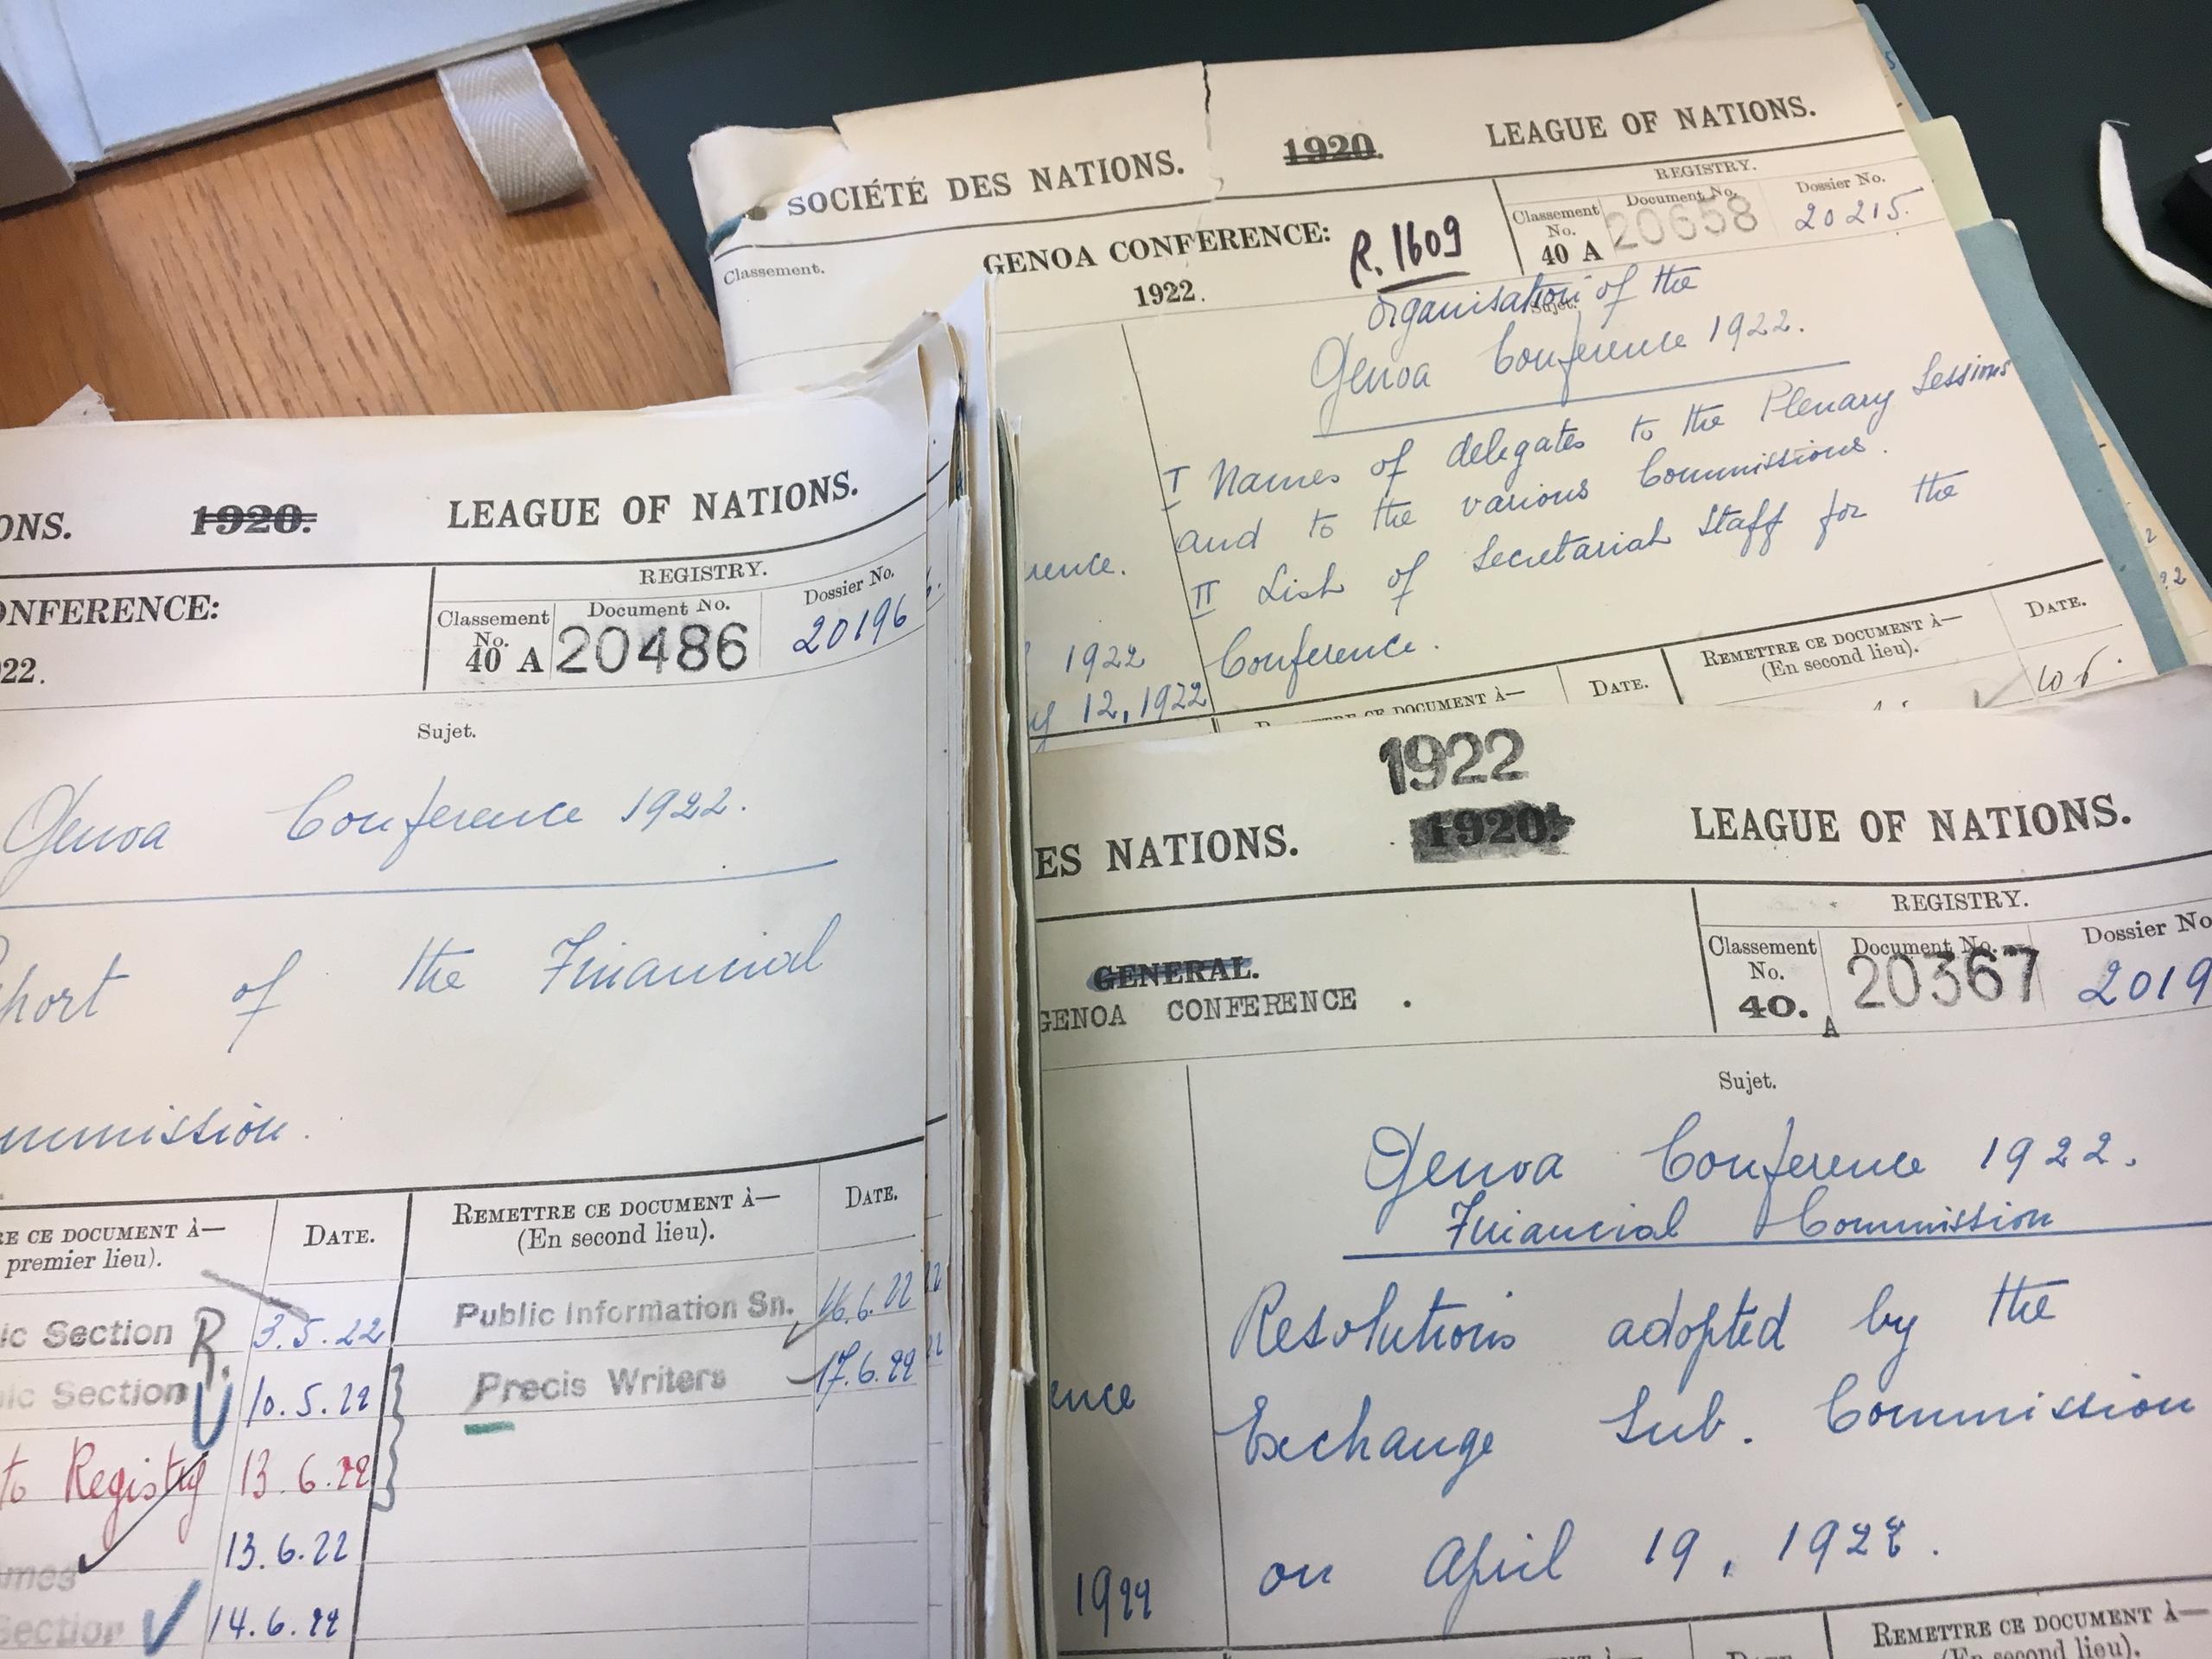 SOCIÉTÉ DES NATIONS. 1920. LEAGUE OF NATIONS.
REGISTRY.
Classement.
GENOA CONFERENCE:
1922.
R. 1609
Classement No. 40 A
Document No. 20658
Dossier No. 20215.
Sujet.
Organisation of the
Genoa Conference 1922.
I Names of delegates to the Plenary Sessions
and to the various Commissions.
II List of Secretariat Staff for the
Conference.
rence.
1922
12, 1922
REMETTRE CE DOCUMENT À—
DATE.
REMETTRE CE DOCUMENT À—
(En second lieu).
DATE.
ONS. 1920. LEAGUE OF NATIONS.
ONFERENCE:
22.
REGISTRY.
Classement No. 40 A
Document No. 20486
Dossier No. 20196
Sujet.
Genoa Conference 1922.
port of the Financial
mmission.
RE CE DOCUMENT À—
premier lieu).
DATE.
REMETTRE CE DOCUMENT À—
(En second lieu).
DATE.
ic Section R. 3.5.22
Public Information Sn. 16.6.22
ic Section 10.5.22
Precis Writers 17.6.22
to Registry 13.6.22
13.6.22
Section 14.6.22
1922
ES NATIONS. 1920. LEAGUE OF NATIONS.
GENERAL.
GENOA CONFERENCE.
REGISTRY.
Classement No. 40. A
Document No. 20367
Dossier No 2019
Sujet.
Genoa Conference 1922.
Financial Commission
Resolutions adopted by the
Exchange Sub. Commission
on April 19, 1922.
ence
1922
REMETTRE CE DOCUMENT À—
(En second lieu).